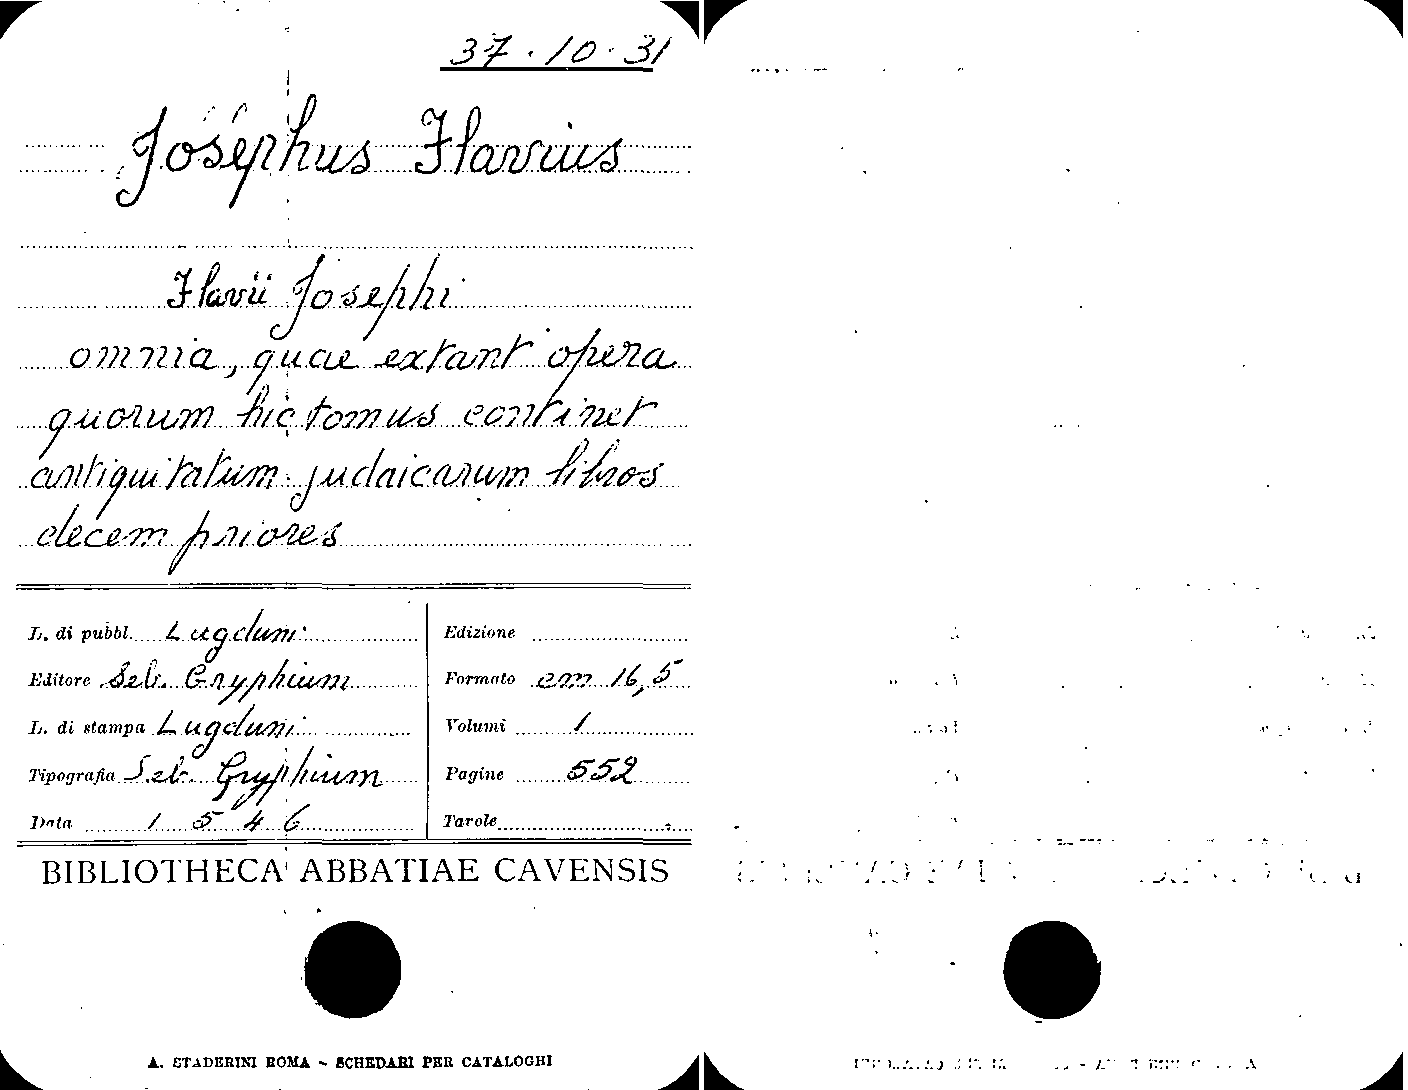 37.10.31
Josephus Flavius
Flavii Josephi
omnia, quae extant opera
quorum hic tomus continet
antiquitatum judaicarum libros
decem priores
L. di pubbl. Lugduni
Editore Seb. Gryphium
L. di stampa Lugduni
Tipografia Seb. Gryphium
Data 1546
Edizione
Formato cm 16,5
Volumi 1
Pagine 552
Tavole
BIBLIOTHECA ABBATIAE CAVENSIS
A. STADERINI ROMA - SCHEDARI PER CATALOGHI